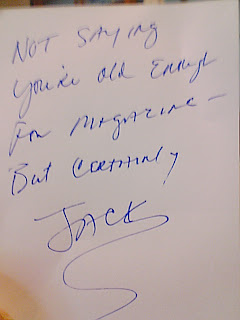 NOT SAYING
You're old Enough
For MAGAZINE —
But CERTAINLY
JACK